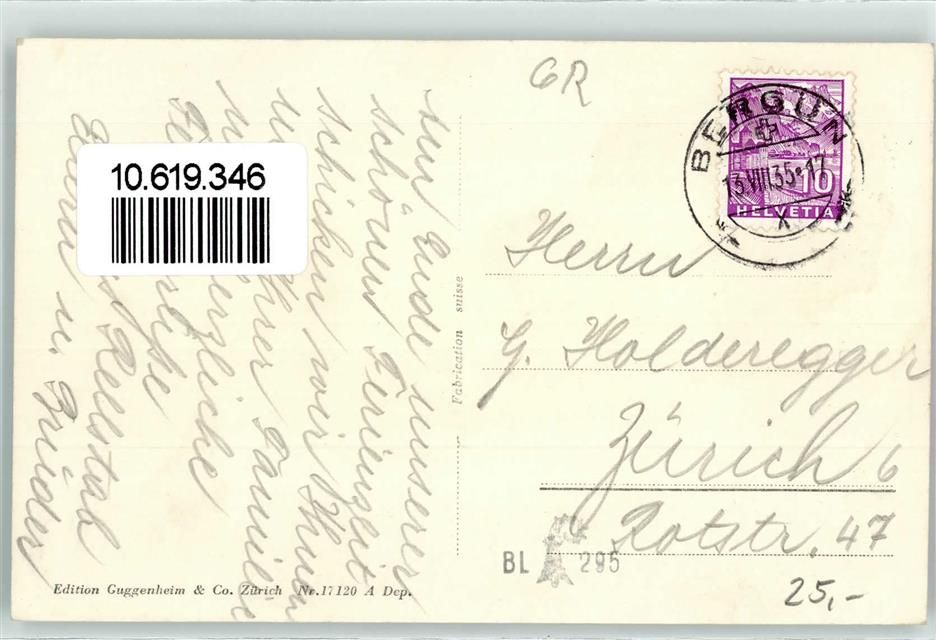 GR
BERGÜN
13.VIII.35·17
X
10
HELVETIA
10.619.346
Am Ende unserer
schönen Ferienzeit
schicken wir Ihnen
u. Ihrer Familie
herzliche
Grüsse
Rellstab
u. Brüder
Fabrication suisse
Herrn
G. Holderegger
Zürich 6
Rotstr. 47
BL 295
25,-
Edition Guggenheim & Co. Zürich Nr. 17120 A Dep.